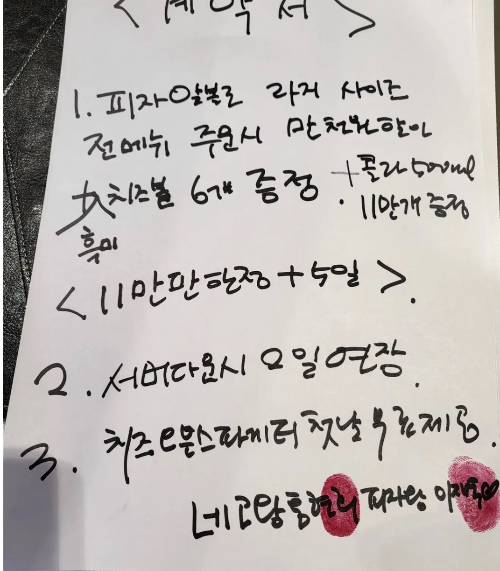 < 계약서 >
1. 피자알볼로 라지 사이즈
전메뉴 주문시 만천원할인
치즈볼 6개 증정 + 콜라 500ml
흑미 · 11만개 증정
< 11만판 한정 + 5일 >.
2. 서버다운시 요일연장.
3. 치즈오븐스파게티 첫날 무료제공.
네고왕 황광희 피자왕